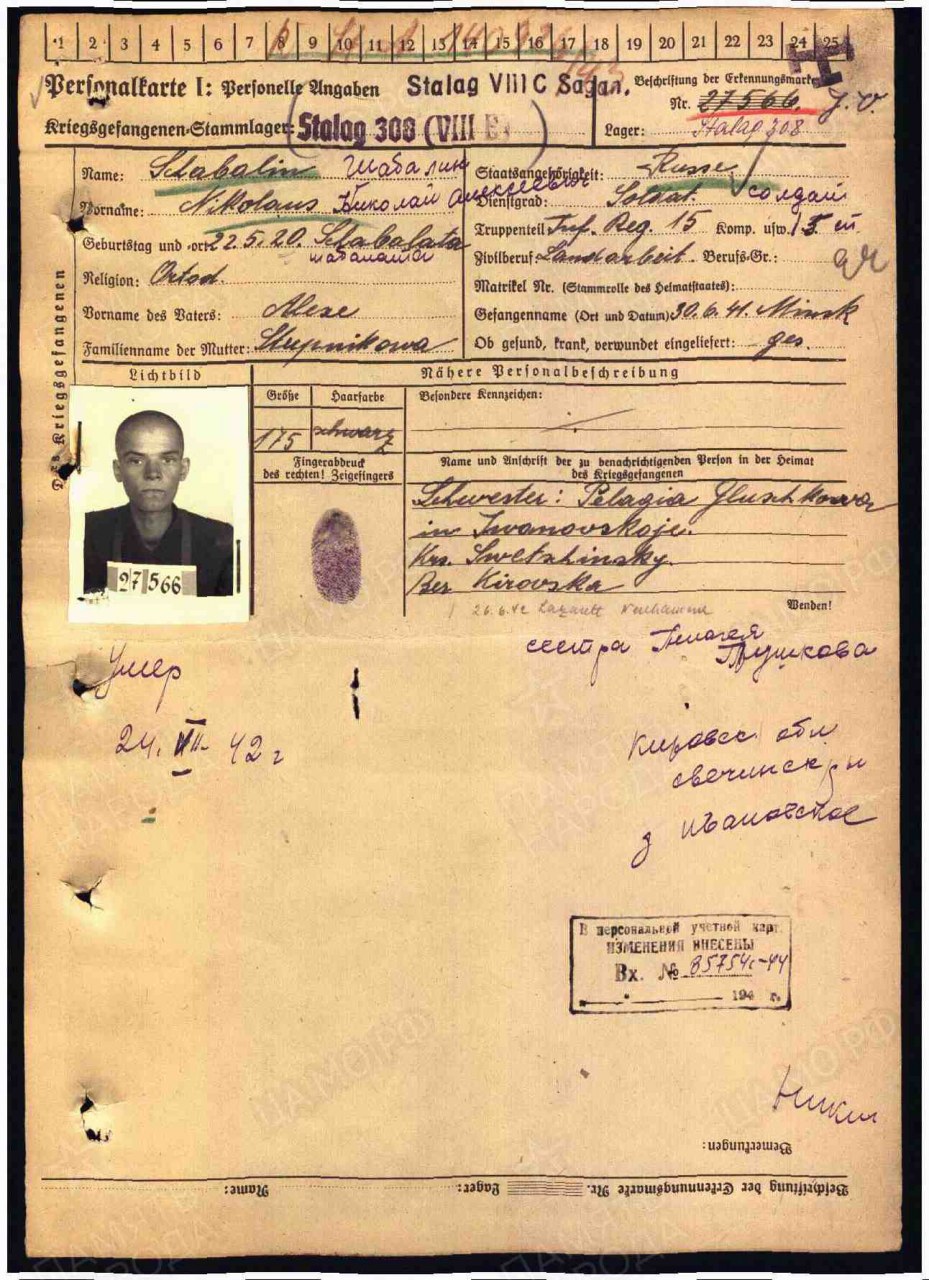 1 2 3 4 5 6 7 8 9 10 11 12 13 14 15 16 17 18 19 20 21 22 23 24 25
Personalkarte I: Personelle Angaben
Stalag VIII C Sagan.
Beschriftung der Erkennungsmarke
Nr. 27566.
Kriegsgefangenen-Stammlager: Stalag 308 (VIII E)
Lager: Stalag 308
Des Kriegsgefangenen
Name: Schabalin Шабалин
Staatsangehörigkeit: Russe
Vorname: Nikolaus Николай Алексеевич
Dienstgrad: Soldat солдат
Geburtstag und -ort 22.5.20. Schabalata
Шабалата
Truppenteil Inf. Reg. 15 Komp. usw.
Religion: Ortod.
Zivilberuf: Landarbeit. Berufs-Gr.:
Matrikel Nr. (Stammrolle des Heimatstaates):
Vorname des Vaters: Alexe
Gefangenname (Ort und Datum) 30.6.41. Minsk
Familienname der Mutter: Stupnikowa
Ob gesund, krank, verwundet eingeliefert: ges.
Lichtbild
Nähere Personalbeschreibung
Größe Haarfarbe Besondere Kennzeichen:
175 schwarz
Fingerabdruck
des rechten! Zeigefingers
Name und Anschrift der zu benachrichtigenden Person in der Heimat
des Kriegsgefangenen
Schwester: Pelagia Gluschkowa
in Iwanovskoje.
Krs. Swetshinsky.
Ber Kirovska
27566
26.6.42 Lazarett Neuhammer
Wenden!
сестра Пелагея
Глушкова
Умер
24. VII. 42 г
Кировск обл
свечинск р н
д Ивановское
В персональной учетной карт.
ИЗМЕНЕНИЯ ВНЕСЕНЫ
Вх. № 85754с-44
194 г.
Bemerkungen:
Beschriftung der Erkennungsmarke Nr. Lager: Name:
ПАМЯТЬ НАРОДА
ЦАМО.РФ